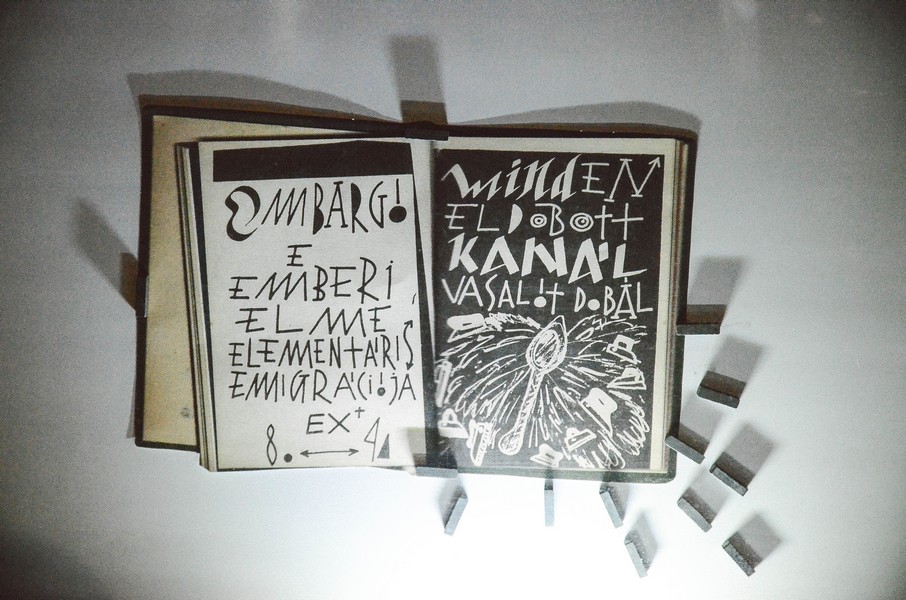 OMBARGO
E
EMBERI
ELME
ELEMENTÁRIS
EMIGRÁCIÓJA
EX+
8. ↔ 4
mindEN
ELDOBOTT
KANÁL
VASALÓT DOBÁL